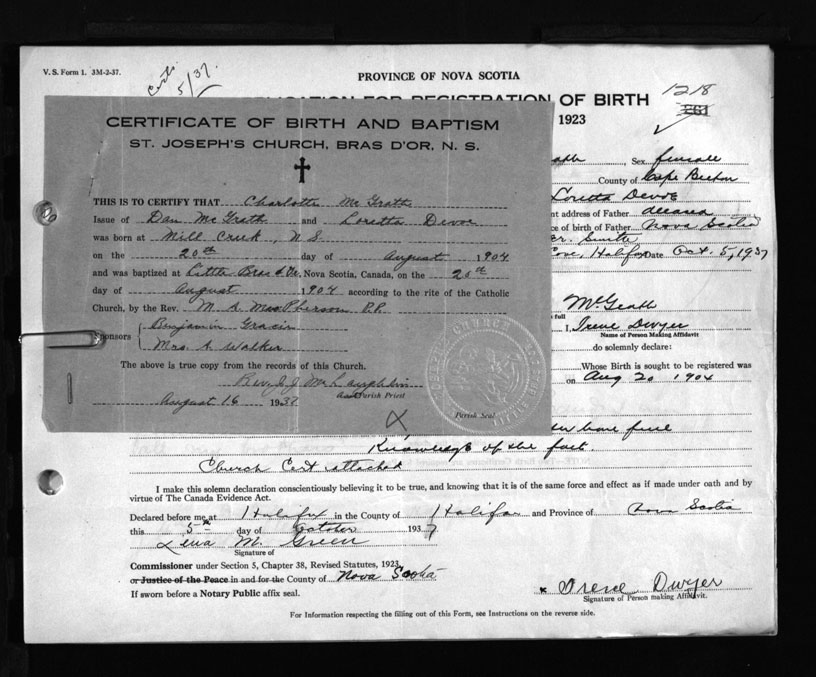 V. S. Form 1. 3M-2-37.
5/37.
PROVINCE OF NOVA SCOTIA
REGISTRATION OF BIRTH
1218
1923
CERTIFICATE OF BIRTH AND BAPTISM
ST. JOSEPH'S CHURCH, BRAS D'OR, N. S.
THIS IS TO CERTIFY THAT Charlotte McGrath
Issue of Dan McGrath and Loretta Devoe
was born at Mill Creek, N S
on the 20th day of August 1904
and was baptized at Little Bras d'Or, Nova Scotia, Canada, on the 20th
day of August 1904 according to the rite of the Catholic
Church, by the Rev. M. A. MacPherson P.P.
Sponsors Benjamin
Mrs. A. Walker
The above is true copy from the records of this Church.
Rev. J. J.
Parish Priest
August 16 1937
Parish Seal
Sex female
County of Cape Breton
Loretta Devoe
address of Father
of birth of Father Nova Scotia
Cove, Halifax Date Oct. 5, 1937
McGrath
full
I, Irene Dwyer
Name of Person Making Affidavit
do solemnly declare:
Whose Birth is sought to be registered was
on Aug 20 1904
have full
Knowledge of the fact.
Church Cert attached
I make this solemn declaration conscientiously believing it to be true, and knowing that it is of the same force and effect as if made under oath and by
virtue of The Canada Evidence Act.
Declared before me at Halifax in the County of Halifax and Province of Nova Scotia
this 5th day of October 1937
Lena M. Green
Signature of
Commissioner under Section 5, Chapter 38, Revised Statutes, 1923,
or Justice of the Peace in and for the County of Nova Scotia
If sworn before a Notary Public affix seal.
x Irene Dwyer
Signature of Person making Affidavit.
For Information respecting the filling out of this Form, see Instructions on the reverse side.